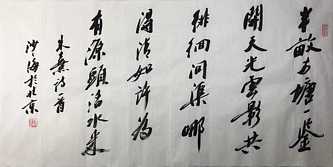 半畝方塘一鑒
開天光雲影共
徘徊问渠哪
得清如許為
有源頭活水来
朱熹詩一首
沙海於北京